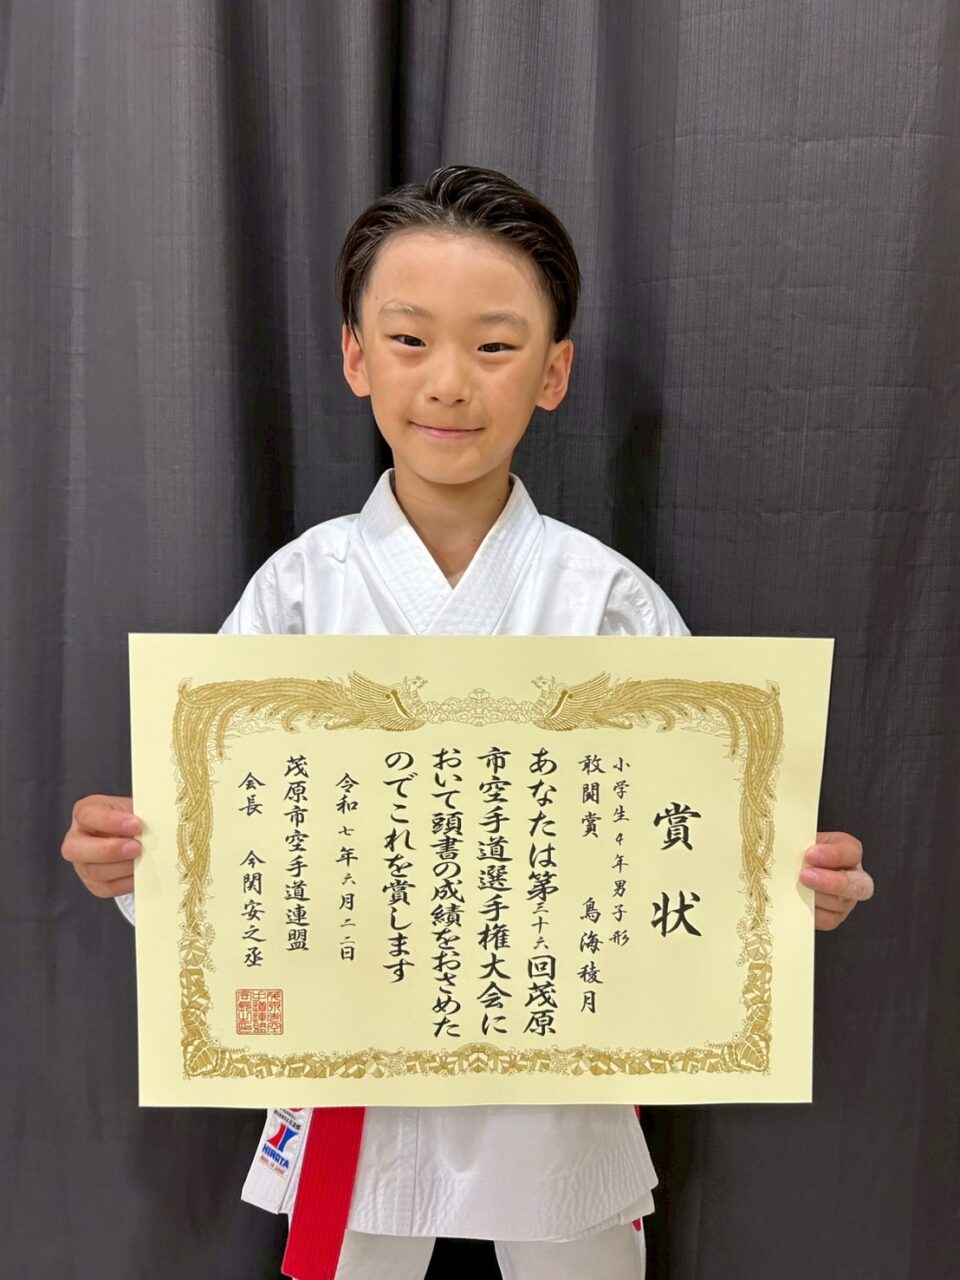 賞状
小学生4年男子形
敢闘賞 鳥海稜月
あなたは第三十六回茂原
市空手道選手権大会に
おいて頭書の成績をおさめた
のでこれを賞します
令和七年六月二二日
茂原市空手道連盟
会長 今関安之丞
HIROTA